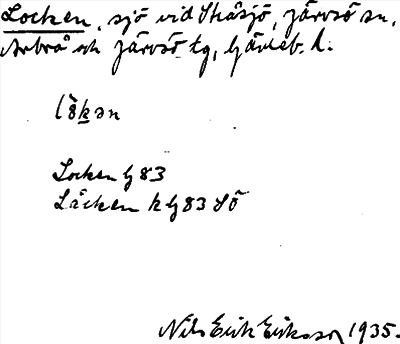 Locken, sjö vid Skåsjö, Järvsö sn,
Arbrå och Järvsö tg, Gävleb. l.
lo᷈kən
Locken G 83
Låcken k G 83 SÖ
Nils Erik Eriksson 1935.